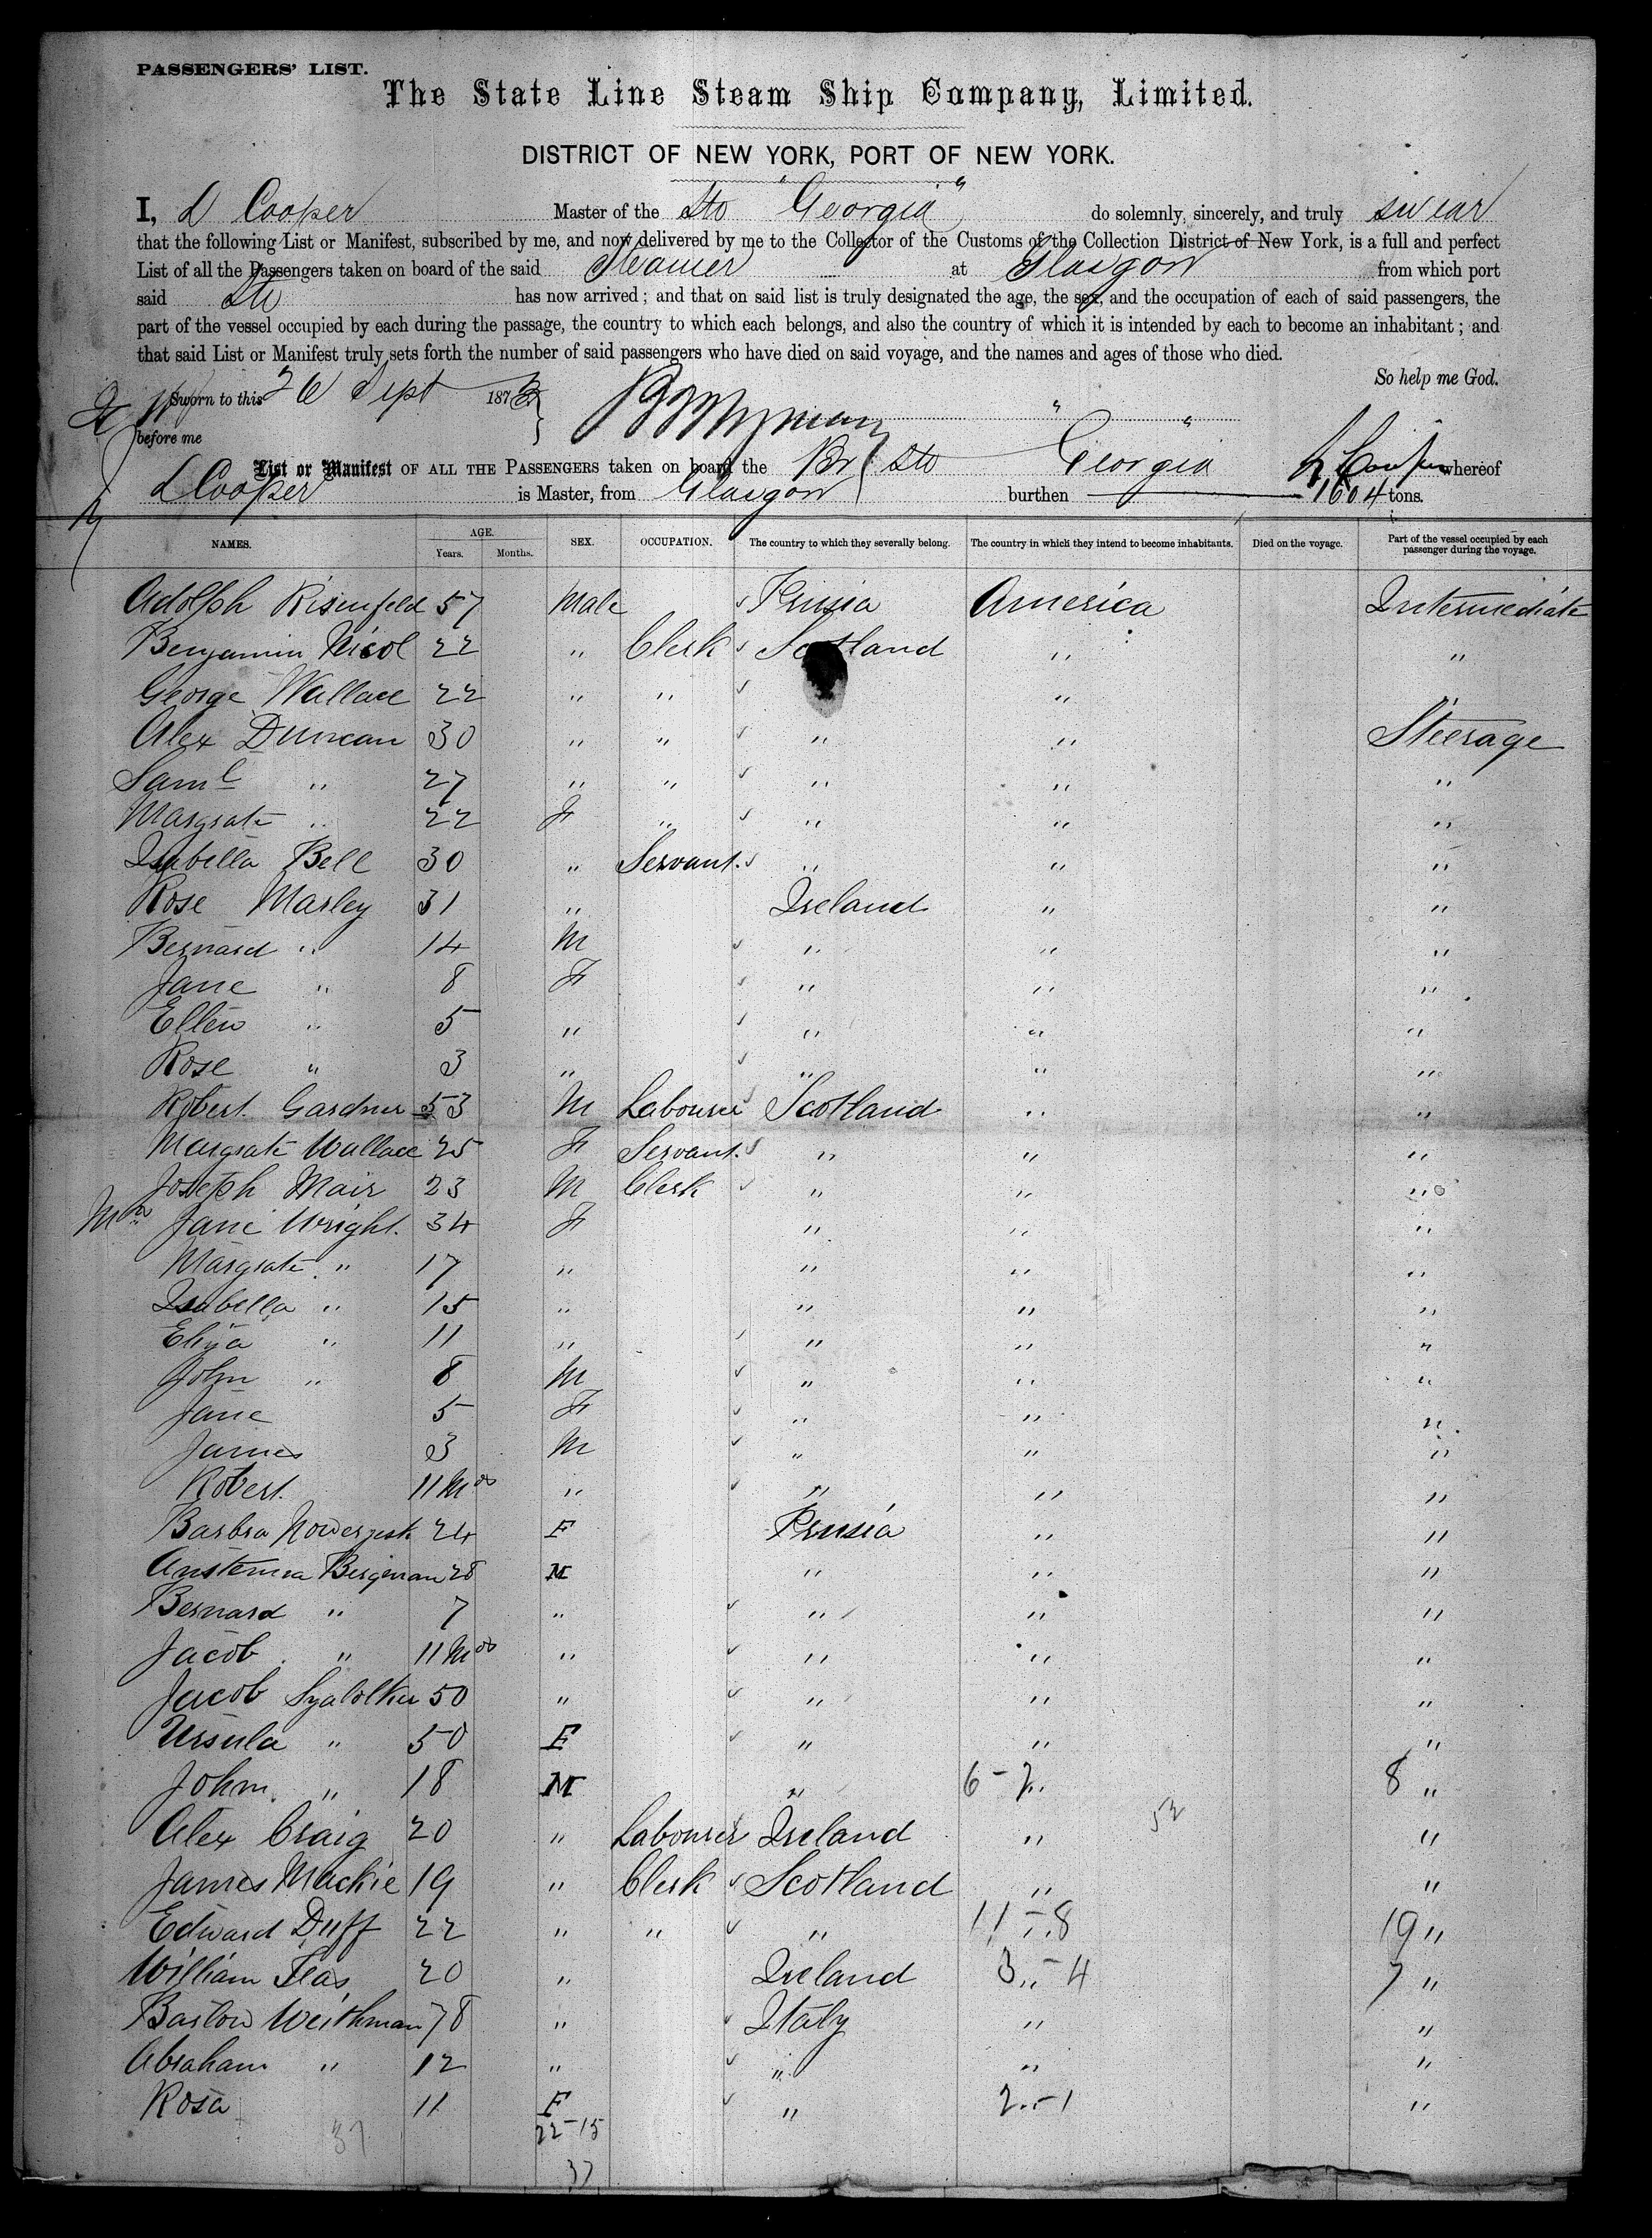 PASSENGERS' LIST.
The State Line Steam Ship Company, Limited.
DISTRICT OF NEW YORK, PORT OF NEW YORK.
I, D Cooper Master of the "Georgia" do solemnly, sincerely, and truly swear
that the following List or Manifest, subscribed by me, and now delivered by me to the Collector of the Customs of the Collection District of New York, is a full and perfect
List of all the Passengers taken on board of the said Steamer at Glasgow from which port
said has now arrived; and that on said list is truly designated the age, the sex, and the occupation of each of said passengers, the
part of the vessel occupied by each during the passage, the country to which each belongs, and also the country of which it is intended by each to become an inhabitant; and
that said List or Manifest truly sets forth the number of said passengers who have died on said voyage, and the names and ages of those who died.
So help me God.
Sworn to this 26 Sept 1873
before me
List or Manifest OF ALL THE PASSENGERS taken on board the Br "Georgia" whereof
D Cooper is Master, from Glasgow burthen 1604 tons.
NAMES. AGE. Years. Months. SEX. OCCUPATION. The country to which they severally belong. The country in which they intend to become inhabitants. Died on the voyage. Part of the vessel occupied by each passenger during the voyage.
Adolph Risenfeld 57 Male Prusia America Intermediate
Benjamin Nicol 22 " Clerk Scotland " "
George Wallace 22 " " "
Alex Duncan 30 " " " " Steerage
Saml " 27 " " " " "
Margrate " 22 F " " " "
Isabella Bell 30 " Servant. " " "
Rose Marley 31 " Ireland " "
Bernard " 14 M " " "
Jane " 8 F " " "
Ellen " 5 " " " "
Rose " 3 " " " "
Robert Gardner 53 M Labourer Scotland " "
Margrate Wallace 25 F Servant. " " "
Joseph Mair 23 M Clerk " " "
Mrs Jane Wright. 34 F " " "
Margrate " 17 " " " "
Isabella " 15 " " " "
Eliza " 11 " " " "
John " 8 M " " "
Jane 5 F " " "
James 3 M " " "
Robert 11 Mos " " " "
Barbra 24 F Prusia " "
Bergman 28 M " " "
Bernard " 7 " " " "
Jacob " 11 Mos " " " "
Jacob 50 " " " "
Ursula " 50 F " " "
John " 18 M " 6 - 2 8 "
Alex Craig 20 " Labourer Ireland " 52 "
James Mackie 19 " Clerk Scotland " "
Edward Duff 22 " " " 11 - 8 19 "
William 20 " Ireland 3 - 4 7 "
Weithman 78 " Italy " "
Abraham " 12 " " " "
Rosa 11 F " 2 - 1 "
37 22-15
37